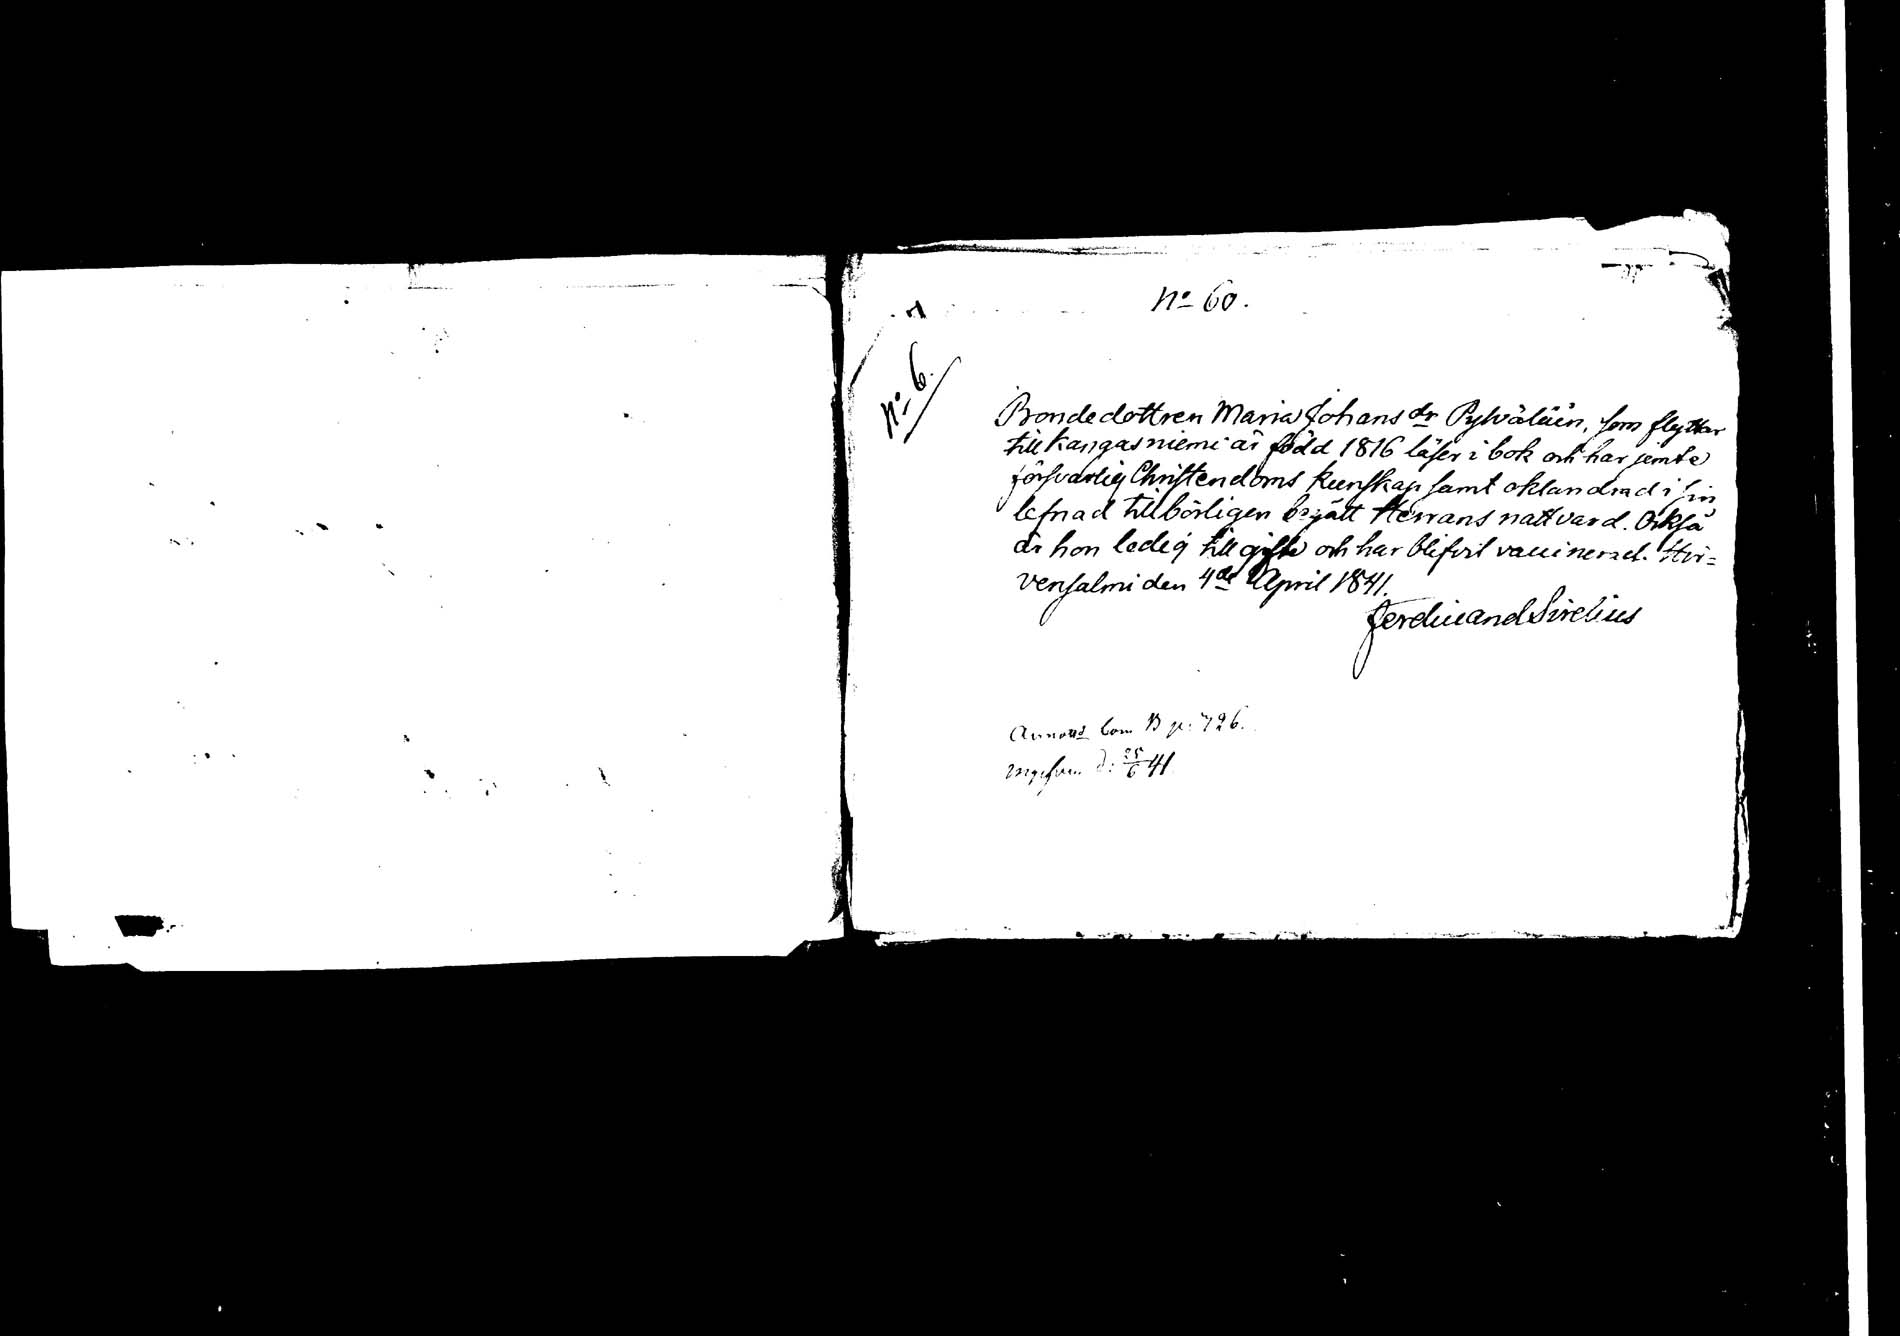 No 60.
No 6.
Bondedottren Maria Johans dr Pylväläin, som flyttar
till Kangasniemi är född 1816 läser i bok och har jemte
försvarlig Christendoms kunskap samt oklandrad i sin
lefnad tillbörligen begått Herrans nattvard. Också
är hon ledig till gifte och har blifvit vaccinerad. Hir=
vensalmi den 4de April 1841.
Ferdinand Sirelius
B p: 726.
d: 25/6 41